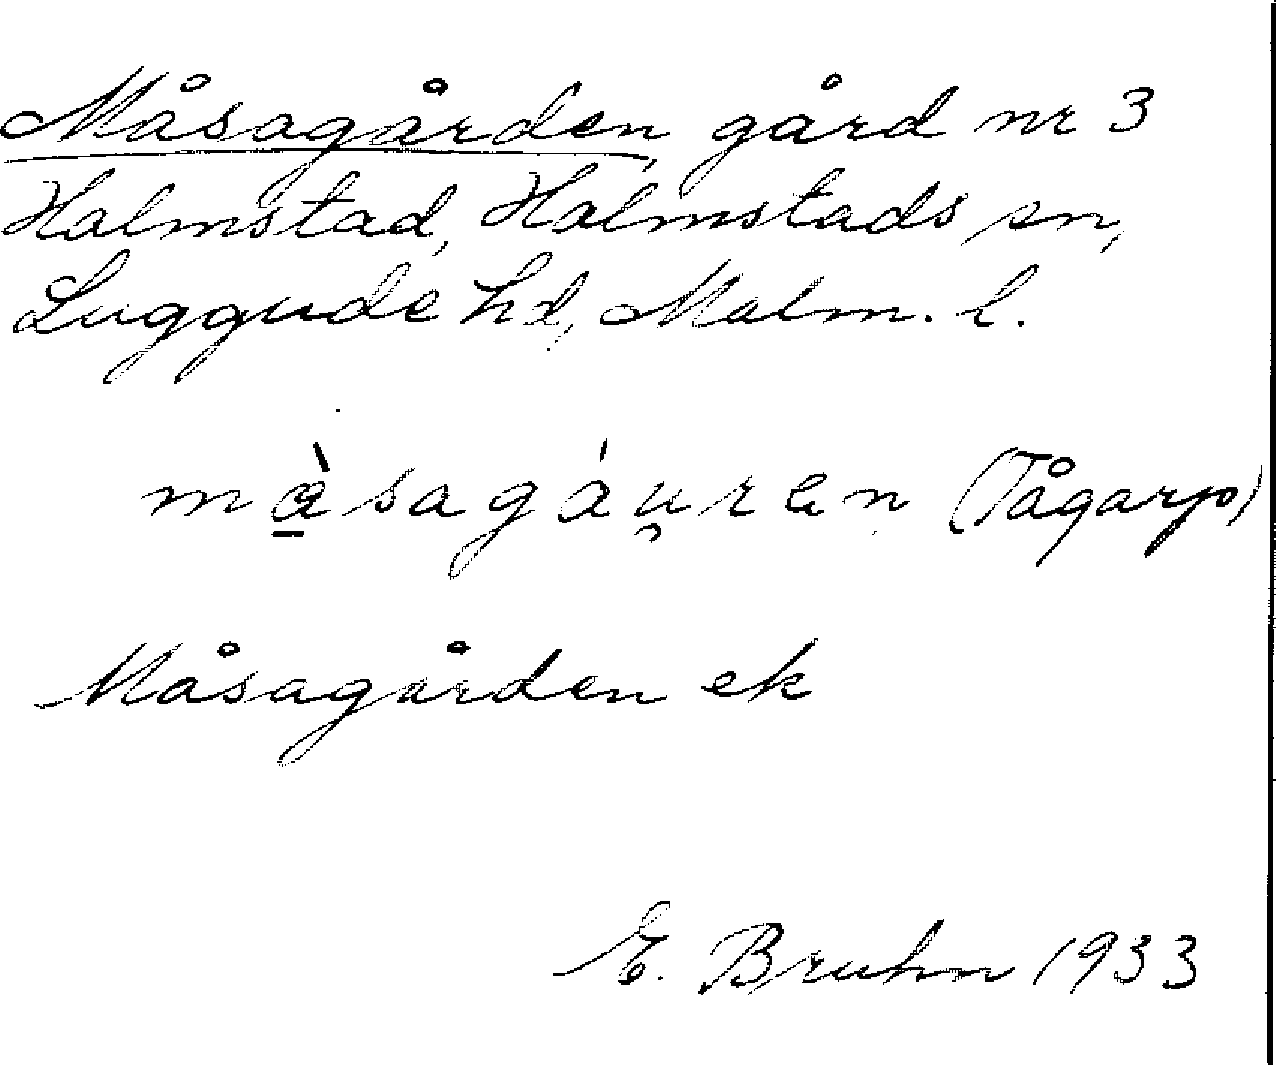 Måsagården, gård nr 3
Halmstad, Halmstads sn,
Luggude hd, Malm. l.
mɑ̱̀sagáu̯ren (Tågarps)
Måsagården ek
E. Bruhn 1933